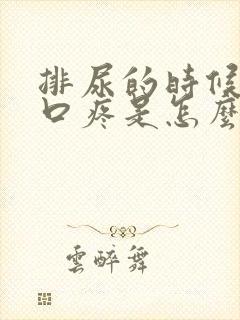 排尿的時候
口疼是怎麼
雲醉舞